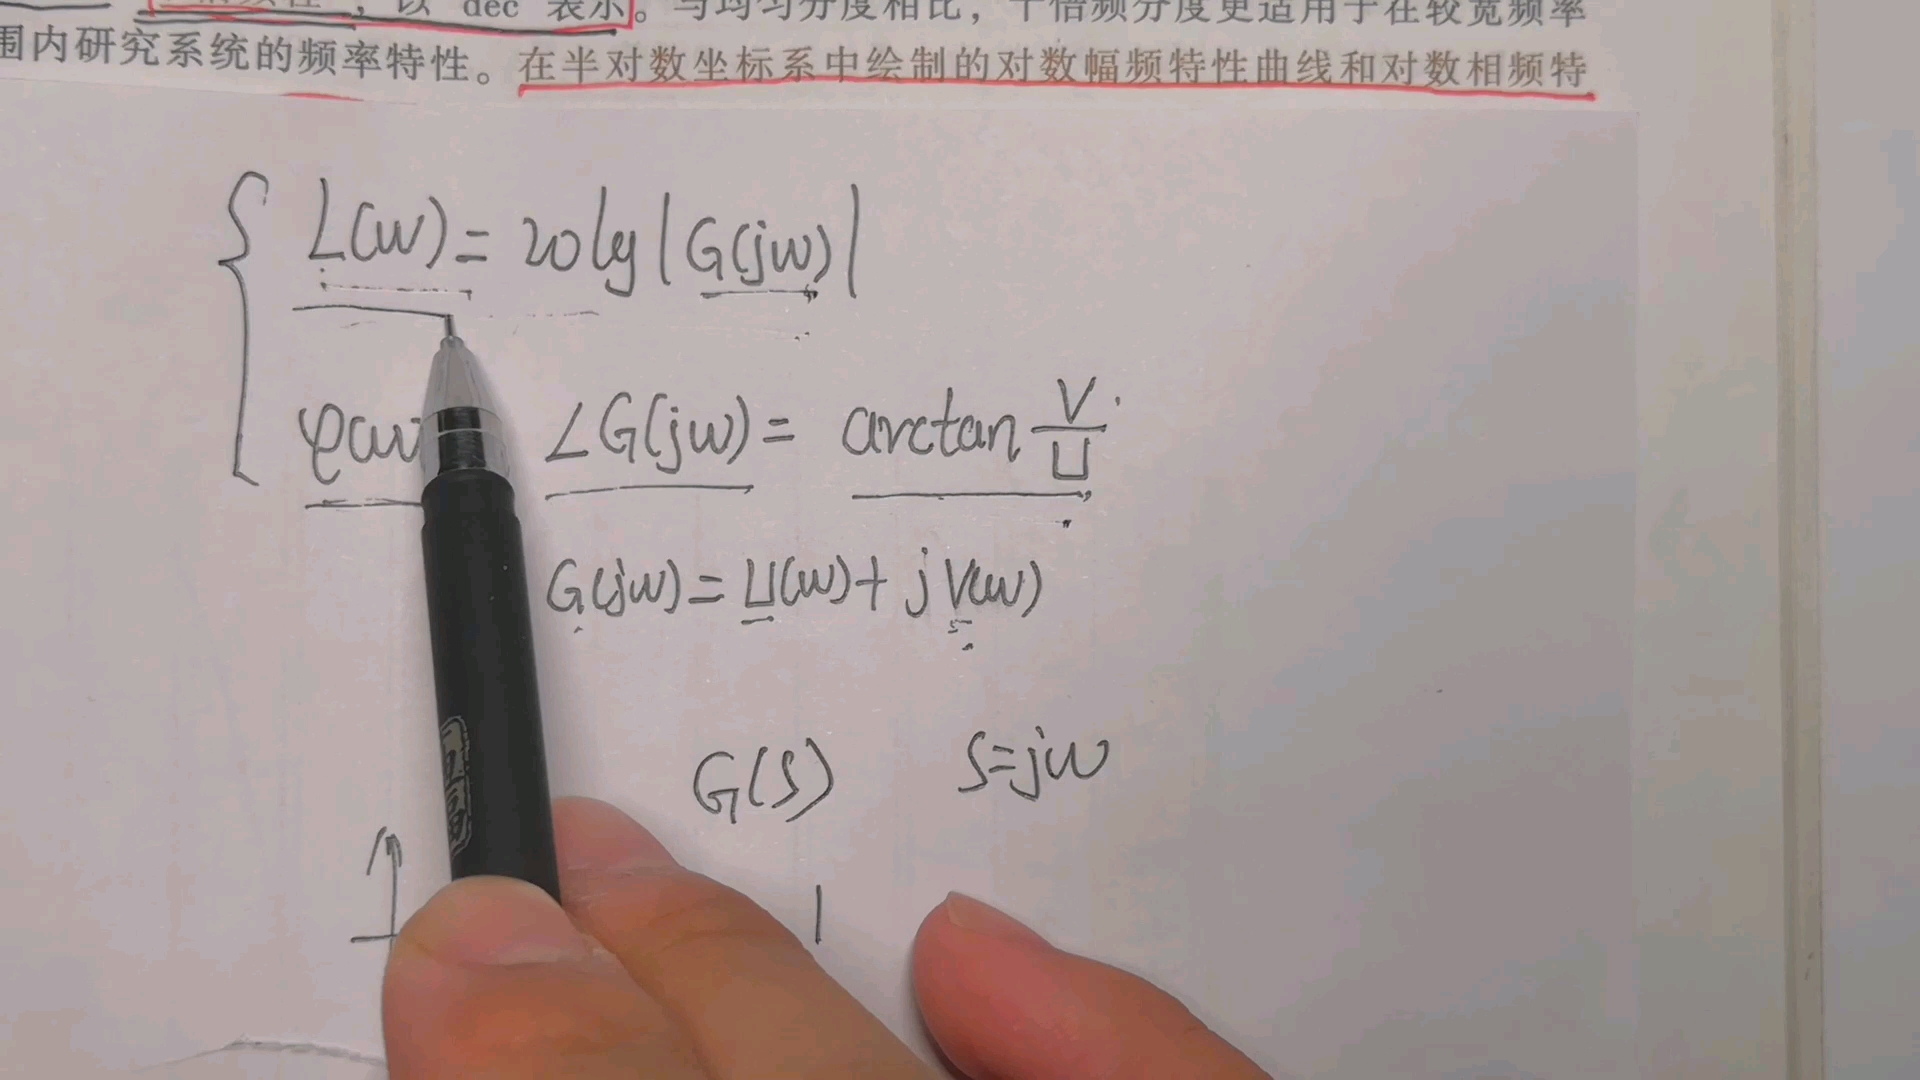 以 "dec" 表示。与均匀分度相比,十倍频分度更适用于在较宽频率
围内研究系统的频率特性。在半对数坐标系中绘制的对数幅频特性曲线和对数相频特
L(w) = 20lg|G(jw)|
φ(w ∠G(jw) = arctan V/U
G(jw) = U(w) + jV(w)
G(s) s=jw
五福